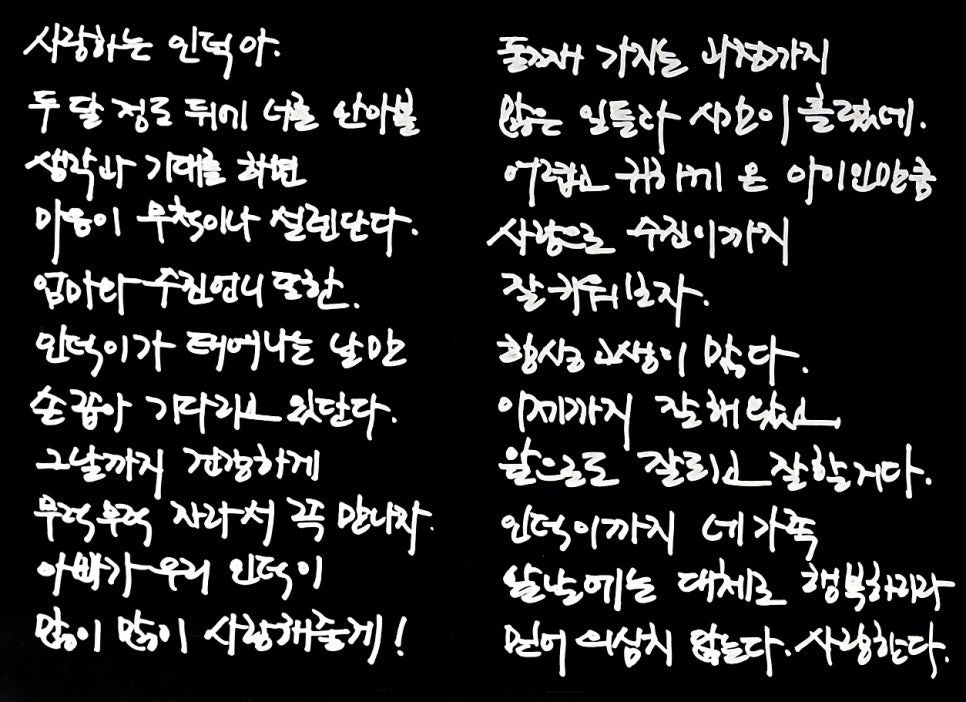 사랑하는 인덕아.
두 달 정도 뒤에 너를 안아볼
생각과 기대를 하면
마음이 무척이나 설렌단다.
엄마와 수진언니 또한.
인덕이가 태어나는 날만
손꼽아 기다리고 있단다.
그날까지 건강하게
무럭무럭 자라서 꼭 만나자.
아빠가 우리 인덕이
많이 많이 사랑해줄게!
둘째 가지는 과정까지
많은 일들과 시간이 흘렀네.
어렵고 귀하게 온 아이인만큼
사랑으로 수진이까지
잘 키워보자.
항상 고생이 많다.
이제까지 잘해왔고
앞으로도 잘되고 잘할거다.
인덕이까지 네가족
앞날에는 대체로 행복하리라
믿어 의심치 않는다. 사랑한다.